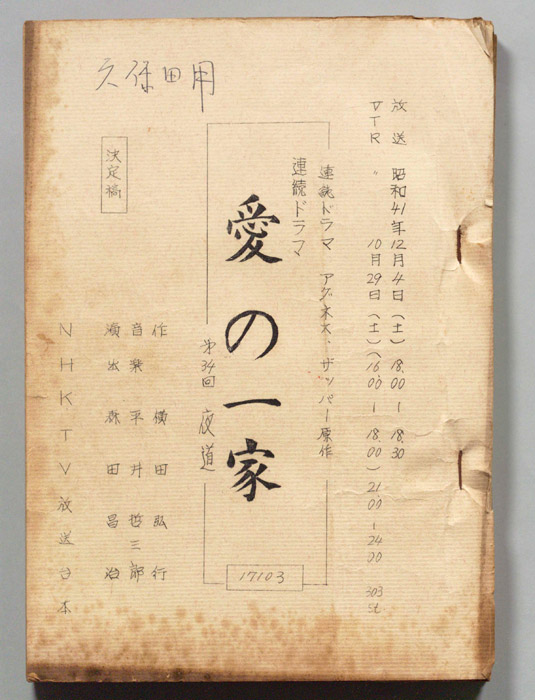 放送 昭和41年12月4日（土）18.00－18.30
VTR 〃 10月29日（土）（16.00－18.00）21.00－24.00 303st
連続ドラマ アグネス・ザッパー原作
連続ドラマ
愛の一家
第34回 夜道
17103
久保田用
決定稿
作 横田弘行
音楽 平井哲三郎
演出 森田昌治
NHKTV放送台本